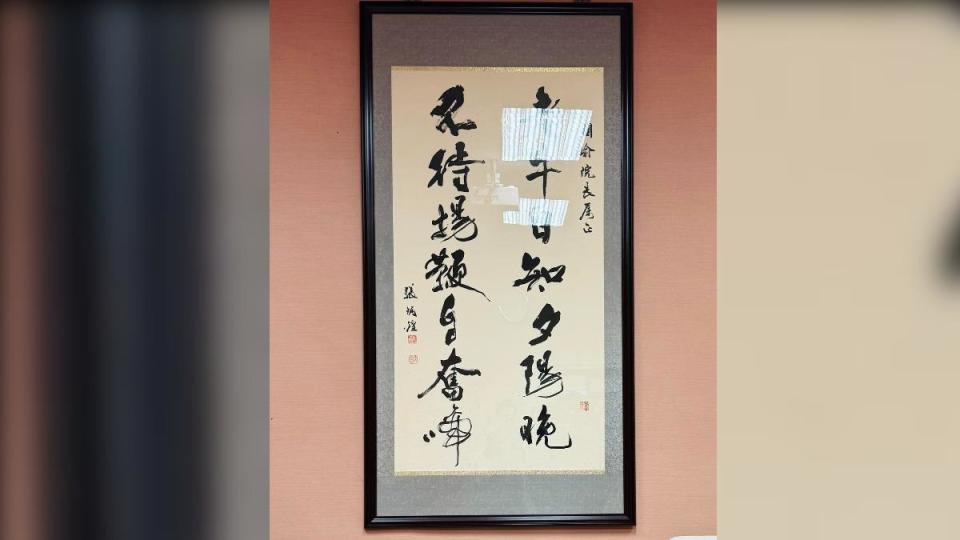 俞院長正
老牛自知夕陽晚
不待揚鞭自奮蹄
張炳煌